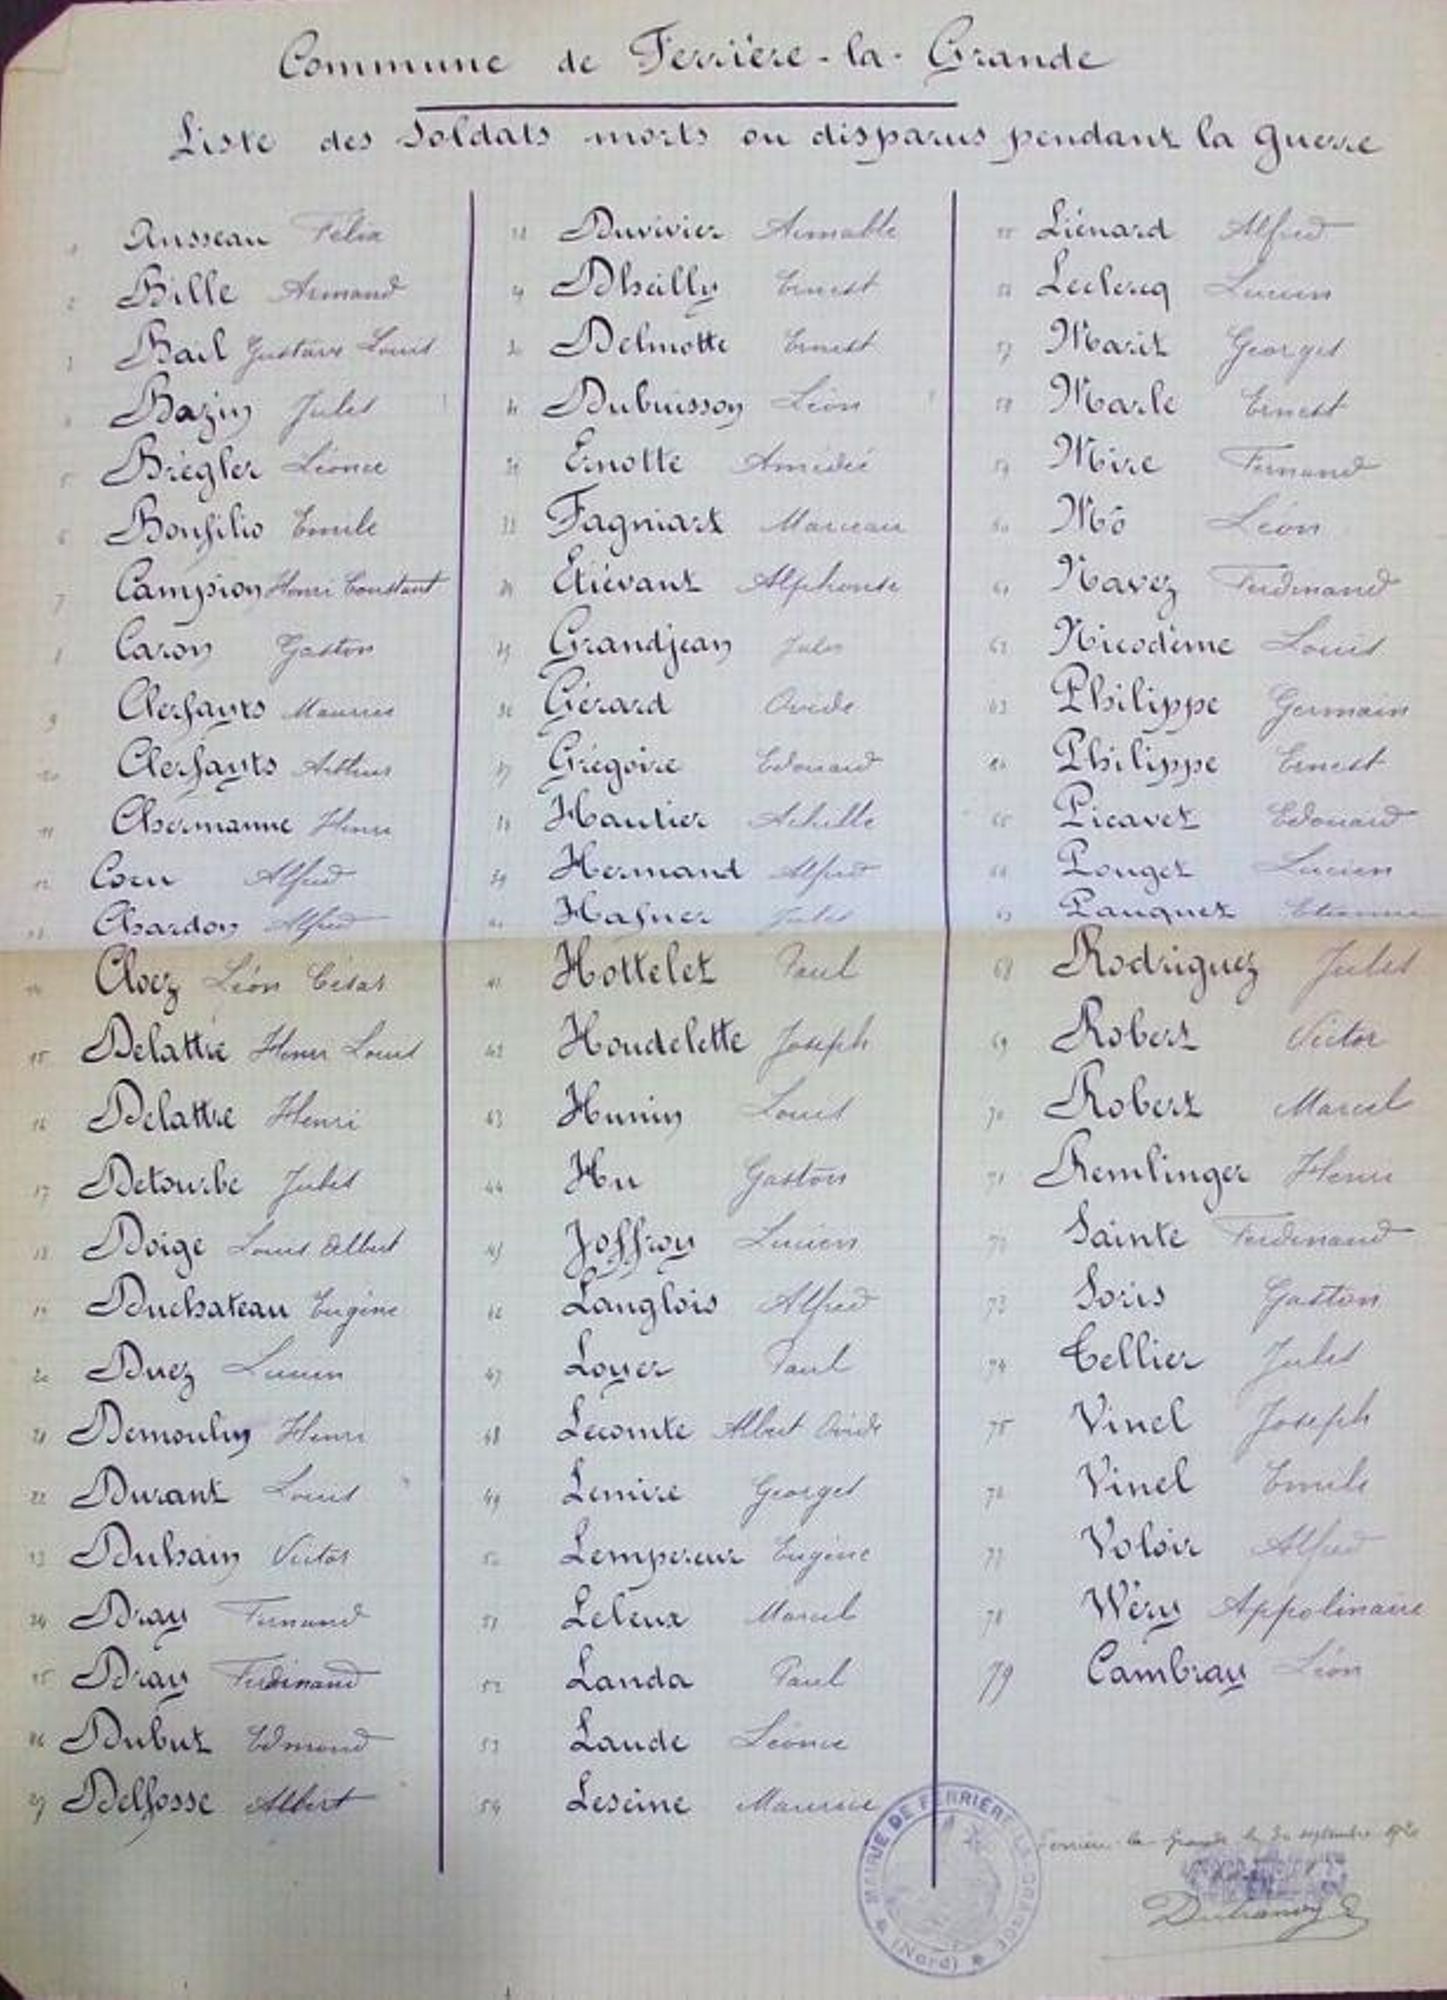 Commune de Ferrière-la-Grande
Liste des Soldats morts ou disparus pendant la Guerre
1 Ausseau Félix
2 Bille Armand
3 Bail Gustave Louis
4 Bazin Jules
5 Brégler Léonce
6 Bonfilio Emile
7 Campion Henri Constant
8 Caron Gaston
9 Clerfayts Maurice
10 Clerfayts Arthur
11 Chermanne Henri
12 Coru Alfred
13 Chardon Alfred
14 Cloez Léon César
15 Delattre Henri Louis
16 Delattre Henri
17 Detourbe Jules
18 Doige Louis Albert
19 Duchateau Eugène
20 Duez Lucien
21 Demoulin Henri
22 Durant Louis
23 Duhain Victor
24 Dray Fernand
25 Dray Ferdinand
26 Dubut Edmond
27 Delfosse Albert
28 Duvivier Aimable
29 Dheilly Ernest
30 Delmotte Ernest
31 Dubuisson Léon
32 Ernotte Amédée
33 Fagniart Marceau
34 Etiévant Alphonse
35 Grandjean Jules
36 Gérard Ovide
37 Grégoire Edouard
38 Hautier Achille
39 Hermand Alfred
40 Hafner Jules
41 Hottelet Paul
42 Houdelette Joseph
43 Hunin Louis
44 Hu Gaston
45 Joffroy Lucien
46 Langlois Alfred
47 Loyer Paul
48 Lecomte Albert Ovide
49 Lemire Georges
50 Lempereur Eugène
51 Leleux Marcel
52 Landa Paul
53 Laude Léonce
54 Leseine Maurice
55 Liénard Alfred
56 Leclercq Lucien
57 Marit Georges
58 Marle Ernest
59 Mire Fernand
60 Mô Léon
61 Navez Ferdinand
62 Nicodème Louis
63 Philippe Germain
64 Philippe Ernest
65 Picavet Edouard
66 Pouget Lucien
67 Pauquet Etienne
68 Rodriguez Jules
69 Robert Victor
70 Robert Marcel
71 Remlinger Henri
72 Sainte Ferdinand
73 Soris Gaston
74 Tellier Jules
75 Vinel Joseph
76 Vinel Emile
77 Voloir Alfred
78 Wéry Appolinaire
79 Cambray Léon
Ferrière-la-Grande le 30 septembre 1920
MAIRIE DE FERRIÈRE-LA-GRANDE
(Nord)